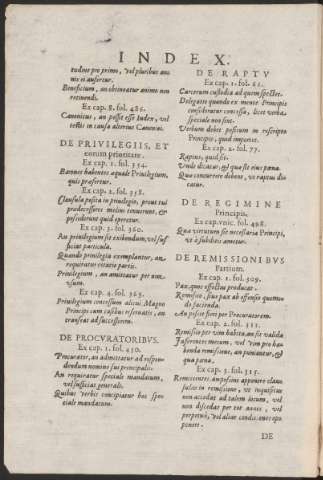 INDEX.
tudine pro primo, vel pluribus an-
nis ei auferetur.
Beneficium, an obtineatur animo non
retinendi.
Ex cap. 8. fol. 485.
Canonicus, an possit esse Iudex, vel
testis in causa alterius Canonici.
DE PRIVILEGIIS, ET
eorum prioritate.
Ex cap. 1. fol. 354.
Bannes habentes aquale Privilegium,
quis praferetur.
Ex cap. 2. fol. 358.
Clausula posita in privilegio, prout sui
predecessores melius tenuerunt, &
possederunt quid operetur.
Ex cap. 3. fol. 360.
An privilegium sit exibendum, vel suf
ficiat particula.
Quando privilegia exemplantur, an
requiratur citatio partis.
Privilegium, an amittatur per non
usum.
Ex cap. 4. fol. 365.
Privilegium concessum alicui Magno
Principi cum casibus reservatis, an
transeat ad successorem.
DE PROCVRATORIBVS.
Ex cap. 1. fol. 450.
Procurator, an admittatur ad respon-
dendum nomine sui principalis.
An requiratur speciale mandatum,
vel sufficiat generale.
Quibus verbis concipiatur hoc spe-
ciale mandatum.
DE RAPTV
Ex cap. 1. fol. 61.
Carcerum custodia ad quem spectet.
Delegatio quando ex mente Principis
consideratur concessa, licet verba
speciale non sint.
Verbum debet positum in rescripto
Principis, quid importet.
Ex cap. 2. fol. 75.
Raptus, quid sit.
Unde dicatur, & qua sit eius pœna.
Qua concurrere debent, ut raptus di-
catur.
DE REGIMINE
Principis.
Ex cap. unic. fol. 498.
Qua virtutum sit necessaria Principi,
ut à subditis ametur.
DE REMISSIONIBVS
Partium.
Ex cap. 1. fol. 509.
Pax, quos effectus producat.
Remissio, sive pax ab offenso quomo-
do facienda.
An possit fieri per Procuratorem.
Ex cap. 2. fol. 511.
Remissio per vim habita, an sit valida
Inferentes metum, vel vim pro ha-
benda remissione, an puniantur, &
qua pœna.
Ex cap. 3. fol. 515.
Remittentes an possint apponere clau-
sulas in remissione, ut inquisitus
non accedat ad talem locum, vel
non discedat per tot annos, vel
perpetuò, vel alias condiciones ap-
ponere.
DE